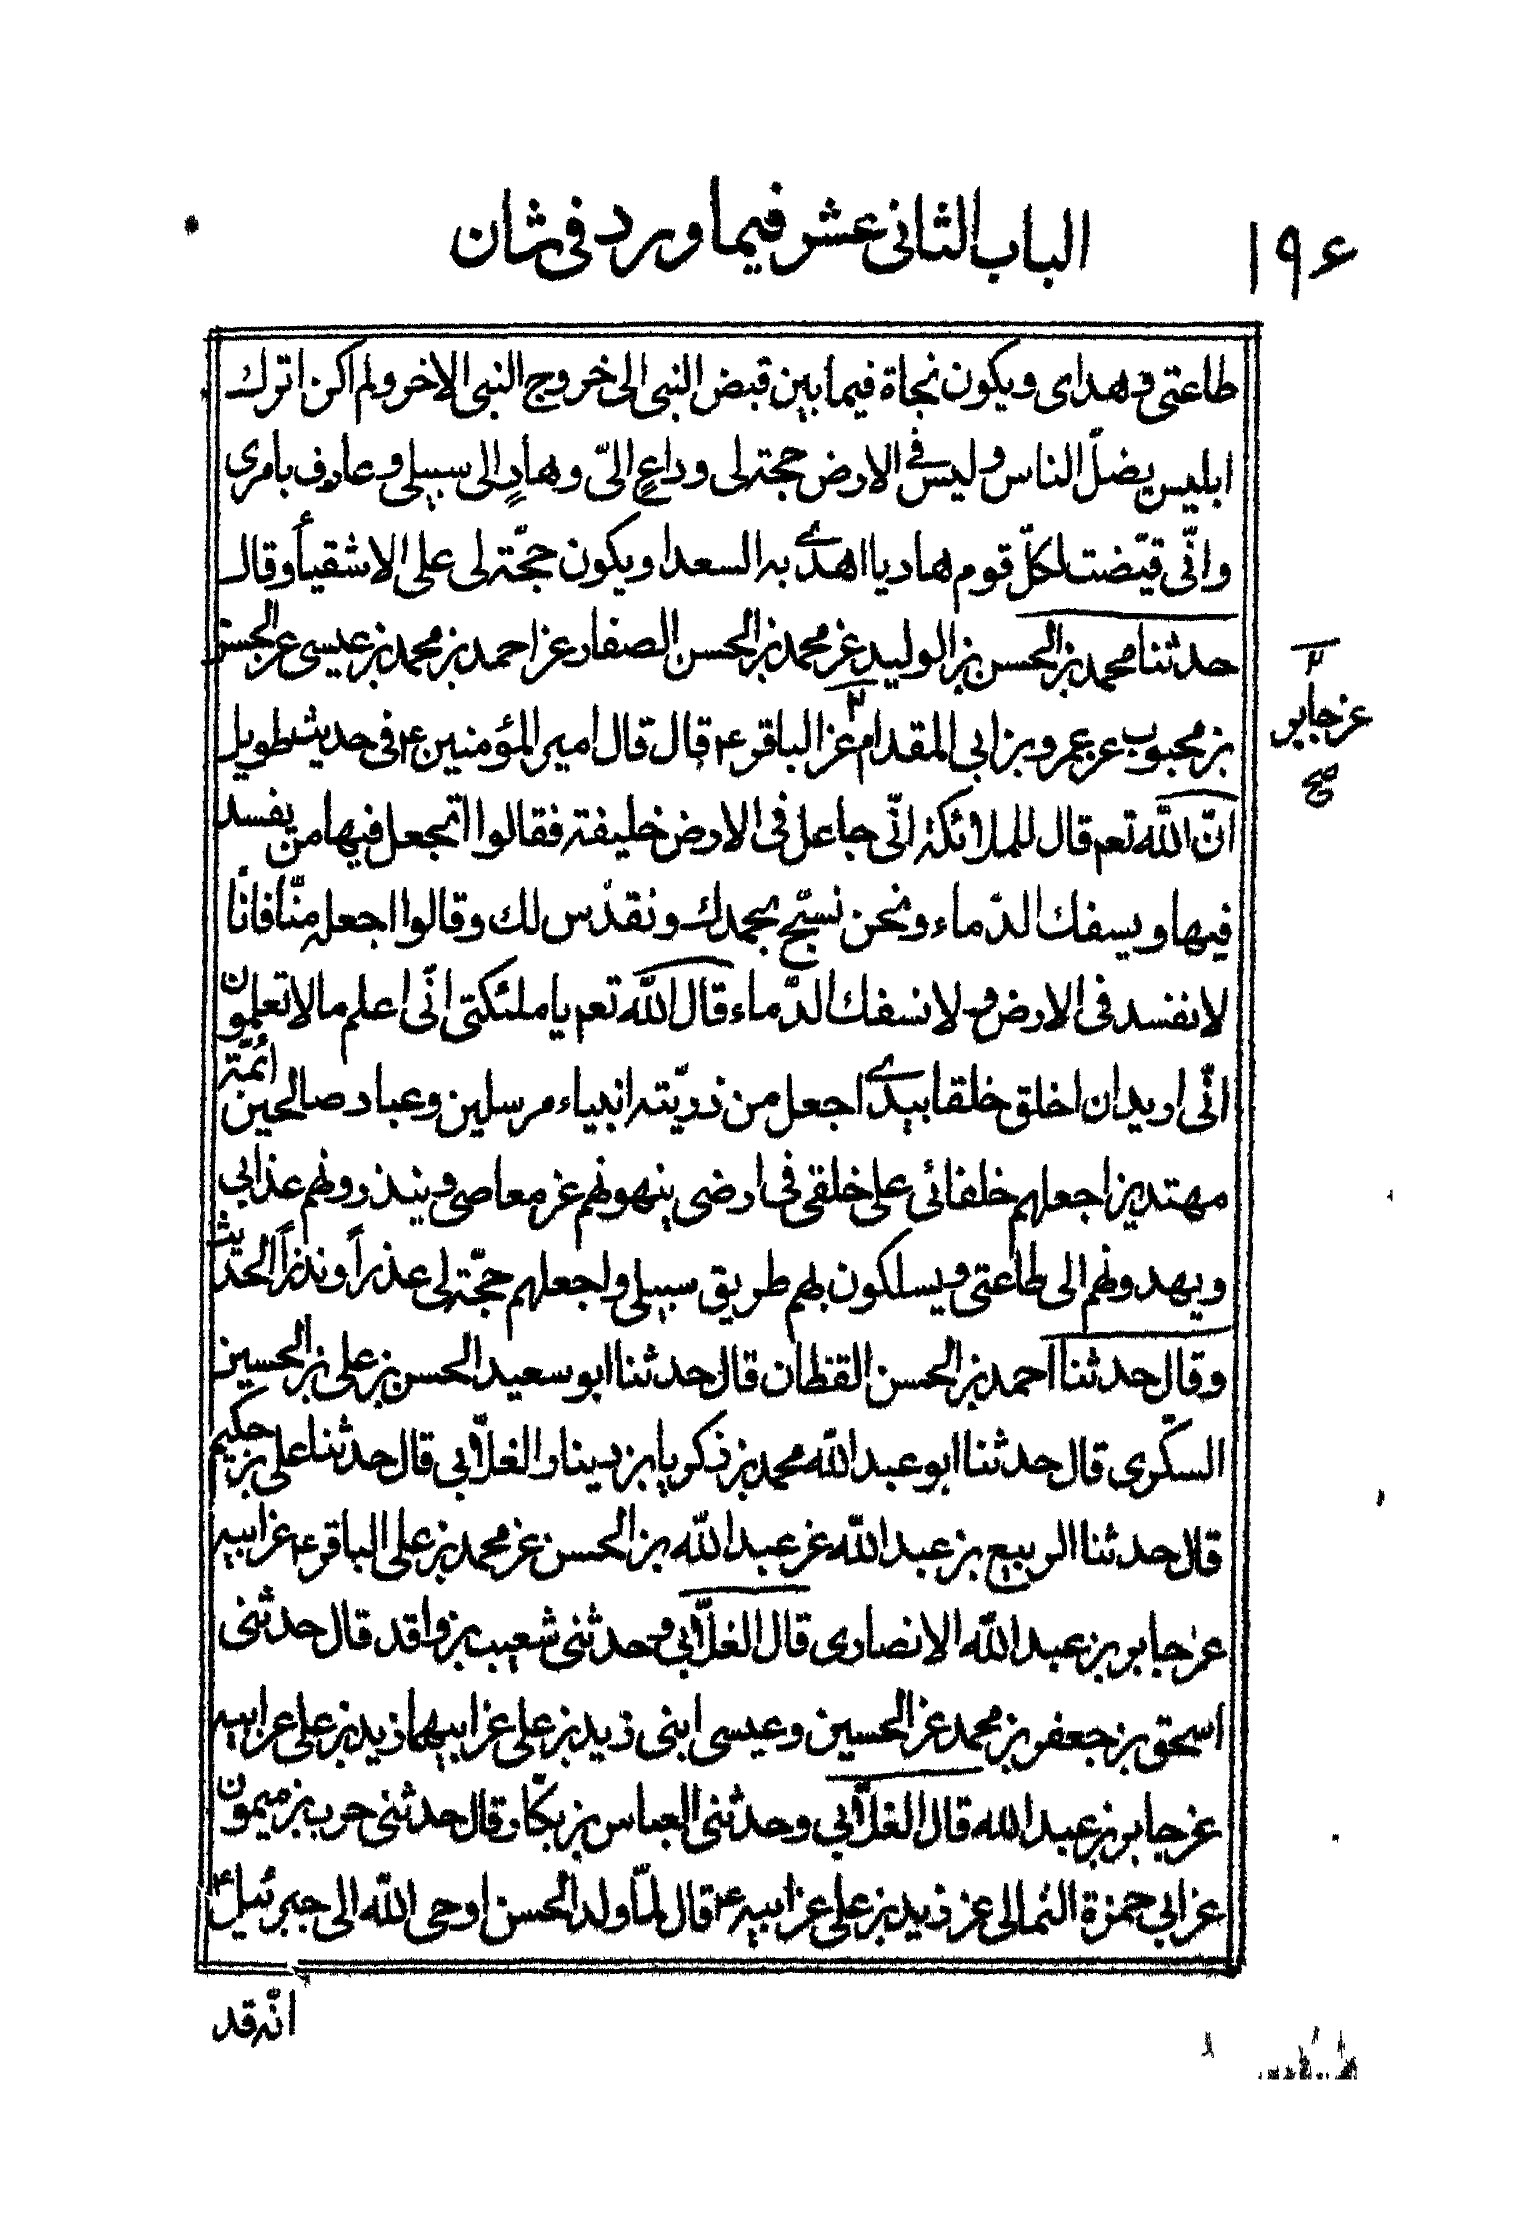 ۱۹۶
الباب الثانی عشر فیما ورد فی شان
طاعتی و هدای و یکون نجاة فیما بین قبض النبی الی خروج النبی الاخر و لم اکن اترک
ابلیس یضلّ الناس و لیس فی الارض حجته لی و داعٍ الیّ و هادٍ الی سبیلی و عارف بامری
و انّی قیّضت لکلّ قوم هادیا اهدی به السعدا و یکون حجّته لی علی الاشقیأ و قال
حدثنا محمد بن الحسن بن الولید عن محمد بن الحسن الصفار عن احمد بن محمد بن عیسی عن الحسن
بن محبوب عن عمرو بن ابی المقدام عن الباقر ع قال قال امیر المؤمنین ع فی حدیث طویل
عن جابر
صح
انّ الله تعم قال للملائکة انّی جاعل فی الارض خلیفته فقالوا اتجعل فیها من یفسد
فیها و یسفک الدّماء و نحن نسبّح بحمدک و نقدّس لک و قالوا اجعله منّا فانّا
لا نفسد فی الارض و لا نسفک الدّماء قال الله تعم یا ملئکتی انّی اعلم ما لا تعلمون
انّی ارید ان اخلق خلقا بیدی اجعل من ذریّته انبیاء مرسلین و عبادا صالحین ائمّته
مهتدین اجعلهم خلفائی علی خلقی فی ارضی ینهونهم عن معاصی و ینذرونهم عذابی
و یهدونهم الی طاعتی و یسلکون بهم طریق سبیلی و اجعلهم حجّته لی عذراً و نذراً الحدیث
و قال حدثنا احمد بن الحسن القطان قال حدثنا ابو سعید الحسن بن علی بن الحسین
السکری قال حدثنا ابو عبد الله محمد بن زکریا بن دینار الغلّابی قال حدثنا علی بن حکیم
قال حدثنا الربیع بن عبد الله عن عبد الله بن الحسن عن محمد بن علی الباقر ع عن ابیه
عن جابر بن عبد الله الانصاری قال الغلّابی و حدثنی شعیب بن واقد قال حدثنی
اسحق بن جعفر بن محمد عن الحسین و عیسی ابنی زید بن علی عن ابیهما زید بن علی عن ابیه
عن جابر بن عبد الله قال الغلّابی و حدثنی العباس بن بکّار قال حدثنی حرب بن میمون
عن ابی حمزة الثمالی عن زید بن علی عن ابیه ع قال لمّا ولد الحسن اوحی الله الی جبرئیل ع
انّه قد